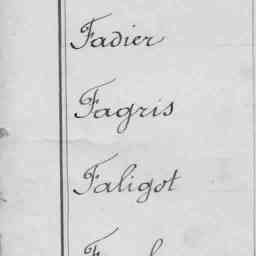 Fadier
Fagris
Faligot